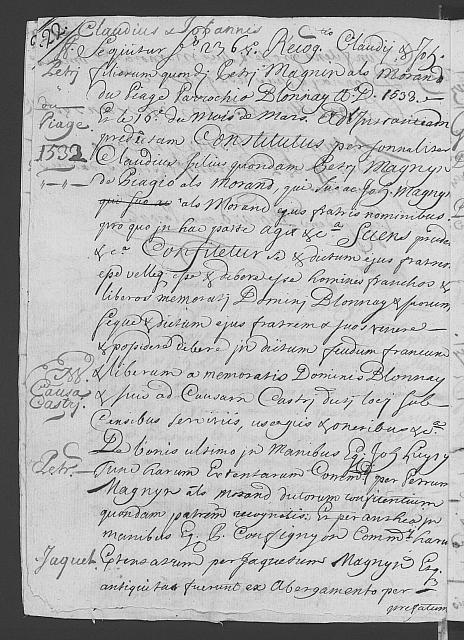 Claudius Johannis
Sequitur 236 Recog. Claudij & Joh.
Petrj filiorum quondj Petrj Magnin als Morand
du Piage Parrochie Blonnay A. D. 1533.
Et le 16. du Mois de Mars. Ad Instanciam
Piage predictam Constitutus personnaliter
1533 Claudius filius quondam Petrj Magnyn
de Piagio als Morand, qui Joh. Magnyn
als Morand ejus fratris nominibus
pro quo jn hac parte agit &c. Sciens prudens
&c. Confitetur se & dictum ejus fratrem
esse velleq esse & debere esse homines franchos &
liberos memoratj Dominj Blonnay & suorum
seque & dictum ejus fratrem & suos tenere
& possidere debere jn dictum feudum francum
& liberum a memoratio Dominio Blonnay
Causa & suis ad Causam Castrj dictj locj sub
Castrj. Censibus serviciis, usagiis & oneribus &c.
De bonis ultimo jn Manibus Eg. Joh.
Petr. harum Extentarum Comm. per Petrum
Magnyn als Morand dictorum confitentium
quondam patrem recognitis. Et per antea jn
manibus Eg. P. Consigny Comm. harum
Jaquet. Extentarum per Jaquetum Magnyn Et
antiquitus fuerunt ex Abergamento per
prefatum